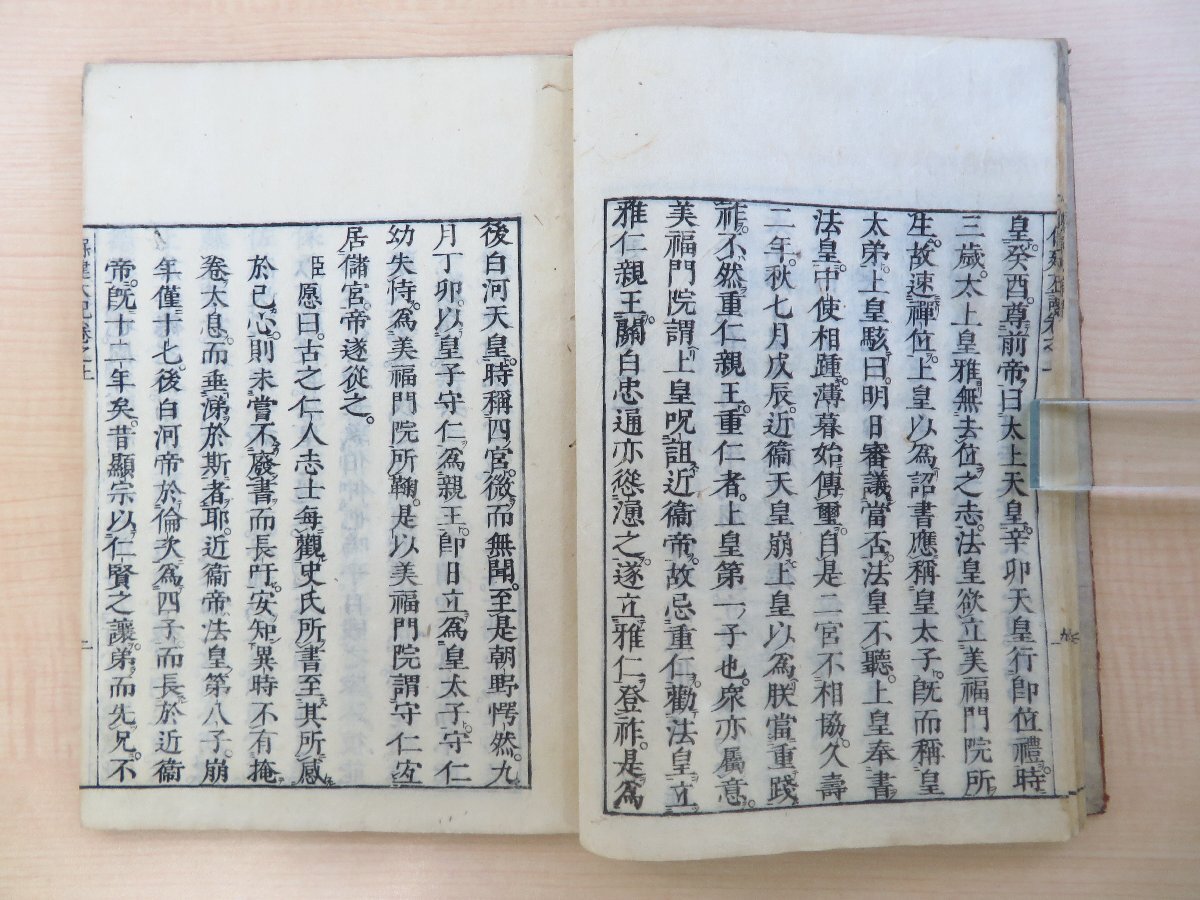 皇。癸酉。尊前帝。曰太上天皇。辛卯天皇行即位禮。時
三歲。太上皇雅無去位之志。法皇欲立美福門院所
生。故速禪位上皇以為詔書應稱皇太子。既而稱皇
太弟。上皇駭曰。明日審議當否。法皇不聽。上皇奉書
法皇。中使相踵。薄暮始傳璽。自是二宮不相協。久壽
二年。秋七月戊辰。近衞天皇崩。上皇以為朕當重踐
祚。不然重仁親王。重仁者。上皇第一子也。衆亦屬意。
美福門院謂上皇呪詛近衞帝。故忌重仁。勸法皇立
雅仁親王。關白忠通亦慫慂之。遂立雅仁登祚。是為
後白河天皇。時稱四宮。微而無聞。至是朝野愕然。九
月丁卯。以皇子守仁為親王。即日立為皇太子。守仁
幼失恃。為美福門院所鞠。是以美福門院謂守仁宜
居儲宮。帝遂從之。
姫愿曰。古之仁人志士。每觀史氏所書。至其所感
於己心。則未嘗不廢書而長吁。安知異時不有掩
卷太息。而垂涕於斯者耶。近衞帝法皇第八子。崩
年僅十七。後白河帝於倫次為四子而長於近衞
帝。既十二年矣。昔顯宗以仁賢之讓。弟而先兄。不
保建大記卷之上